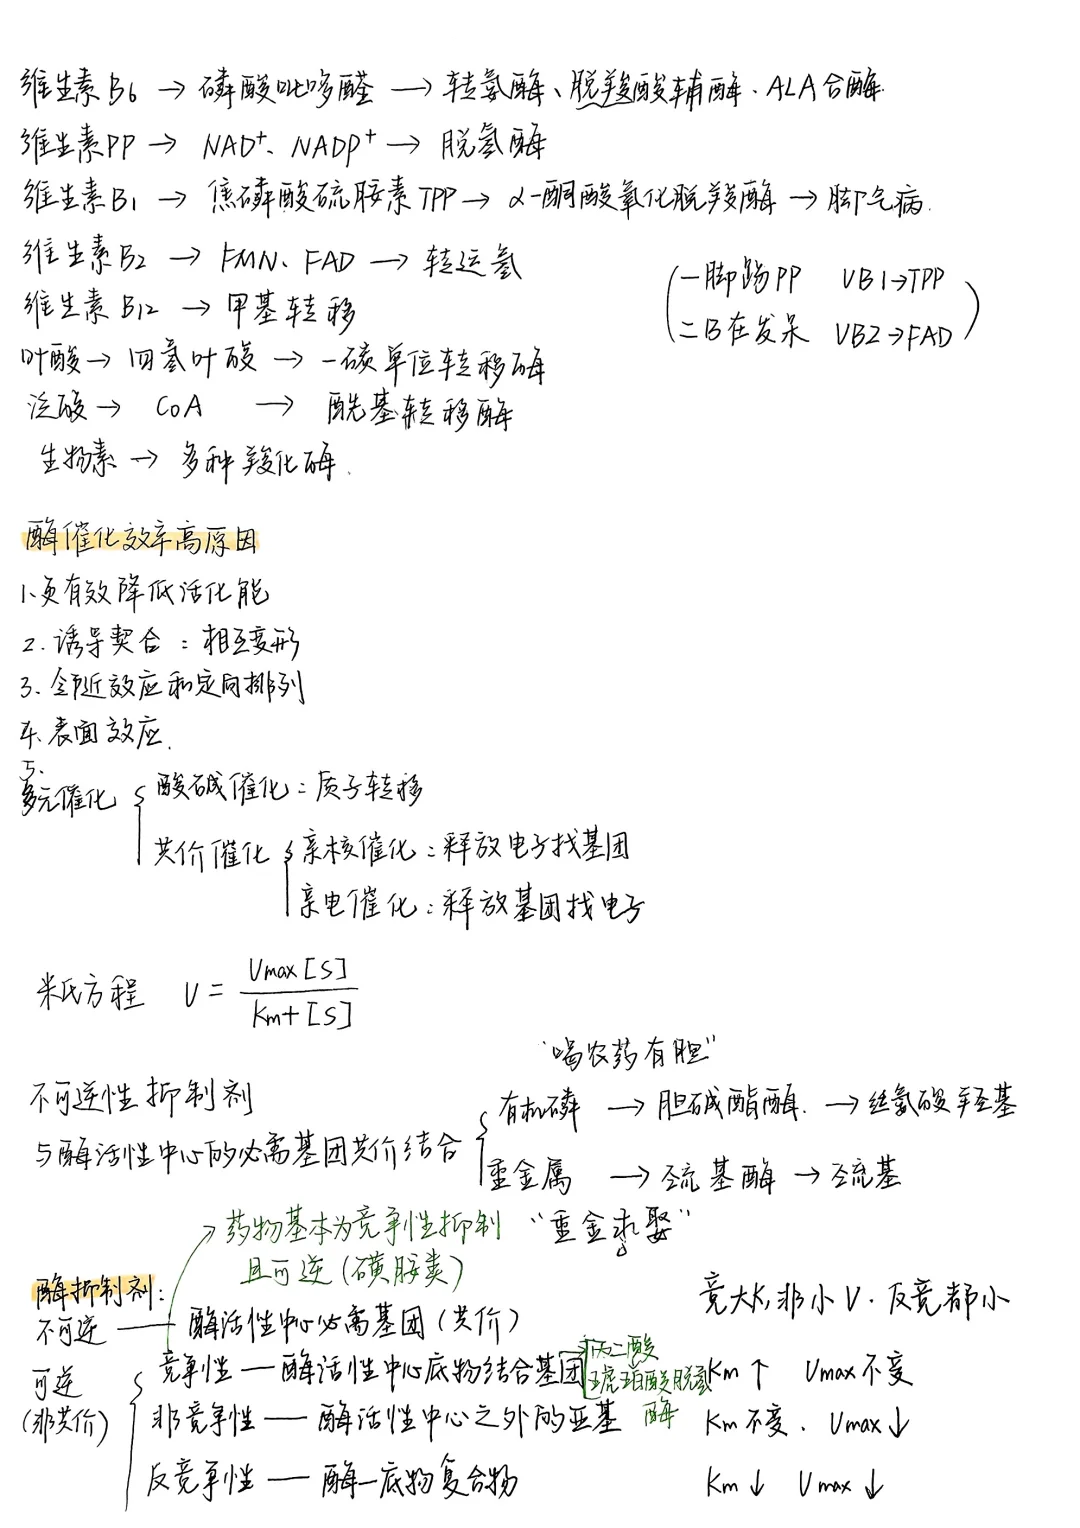 维生素B6 → 磷酸吡哆醛 → 转氨酶、脱羧酸辅酶、ALA合酶
维生素PP → NAD+、NADP+ → 脱氢酶
维生素B1 → 焦磷酸硫胺素TPP → α-酮酸氧化脱羧酶 → 脚气病.
维生素B2 → FMN、FAD → 转运氢
(一脚踢PP VB1→TPP
二B在发呆 VB2→FAD)
维生素B12 → 甲基转移
叶酸 → 四氢叶酸 → 一碳单位转移酶
泛酸 → CoA → 酰基转移酶
生物素 → 多种羧化酶.
酶催化效率高原因
1.更有效降低活化能
2.诱导契合:相互变形
3、邻近效应和定向排列
4.表面效应.
5.
多元催化 { 酸碱催化:质子转移
共价催化 { 亲核催化:释放电子找基团
亲电催化:释放基团找电子
米氏方程 V = Vmax[S]
Km+[S]
"喝农药有胆"
不可逆性抑制剂
有机磷 → 胆碱酯酶. → 丝氨酸羟基
与酶活性中心的必需基团共价结合 {
重金属 → 巯基酶 → 巯基
→ 药物基本为竞争性抑制 "重金求娶"
且可逆(磺胺类)
酶抑制剂:
竞大K,非小V.反竞都小
不可逆 — 酶活性中心必需基团(共价)
可逆
(非共价) { 竞争性 — 酶活性中心底物结合基团 [丙二酸 Km↑ Vmax不变
琥珀酸脱氢酶
非竞争性 — 酶活性中心之外的亚基 Km不变. Vmax↓
反竞争性 — 酶—底物复合物 Km↓ Vmax↓